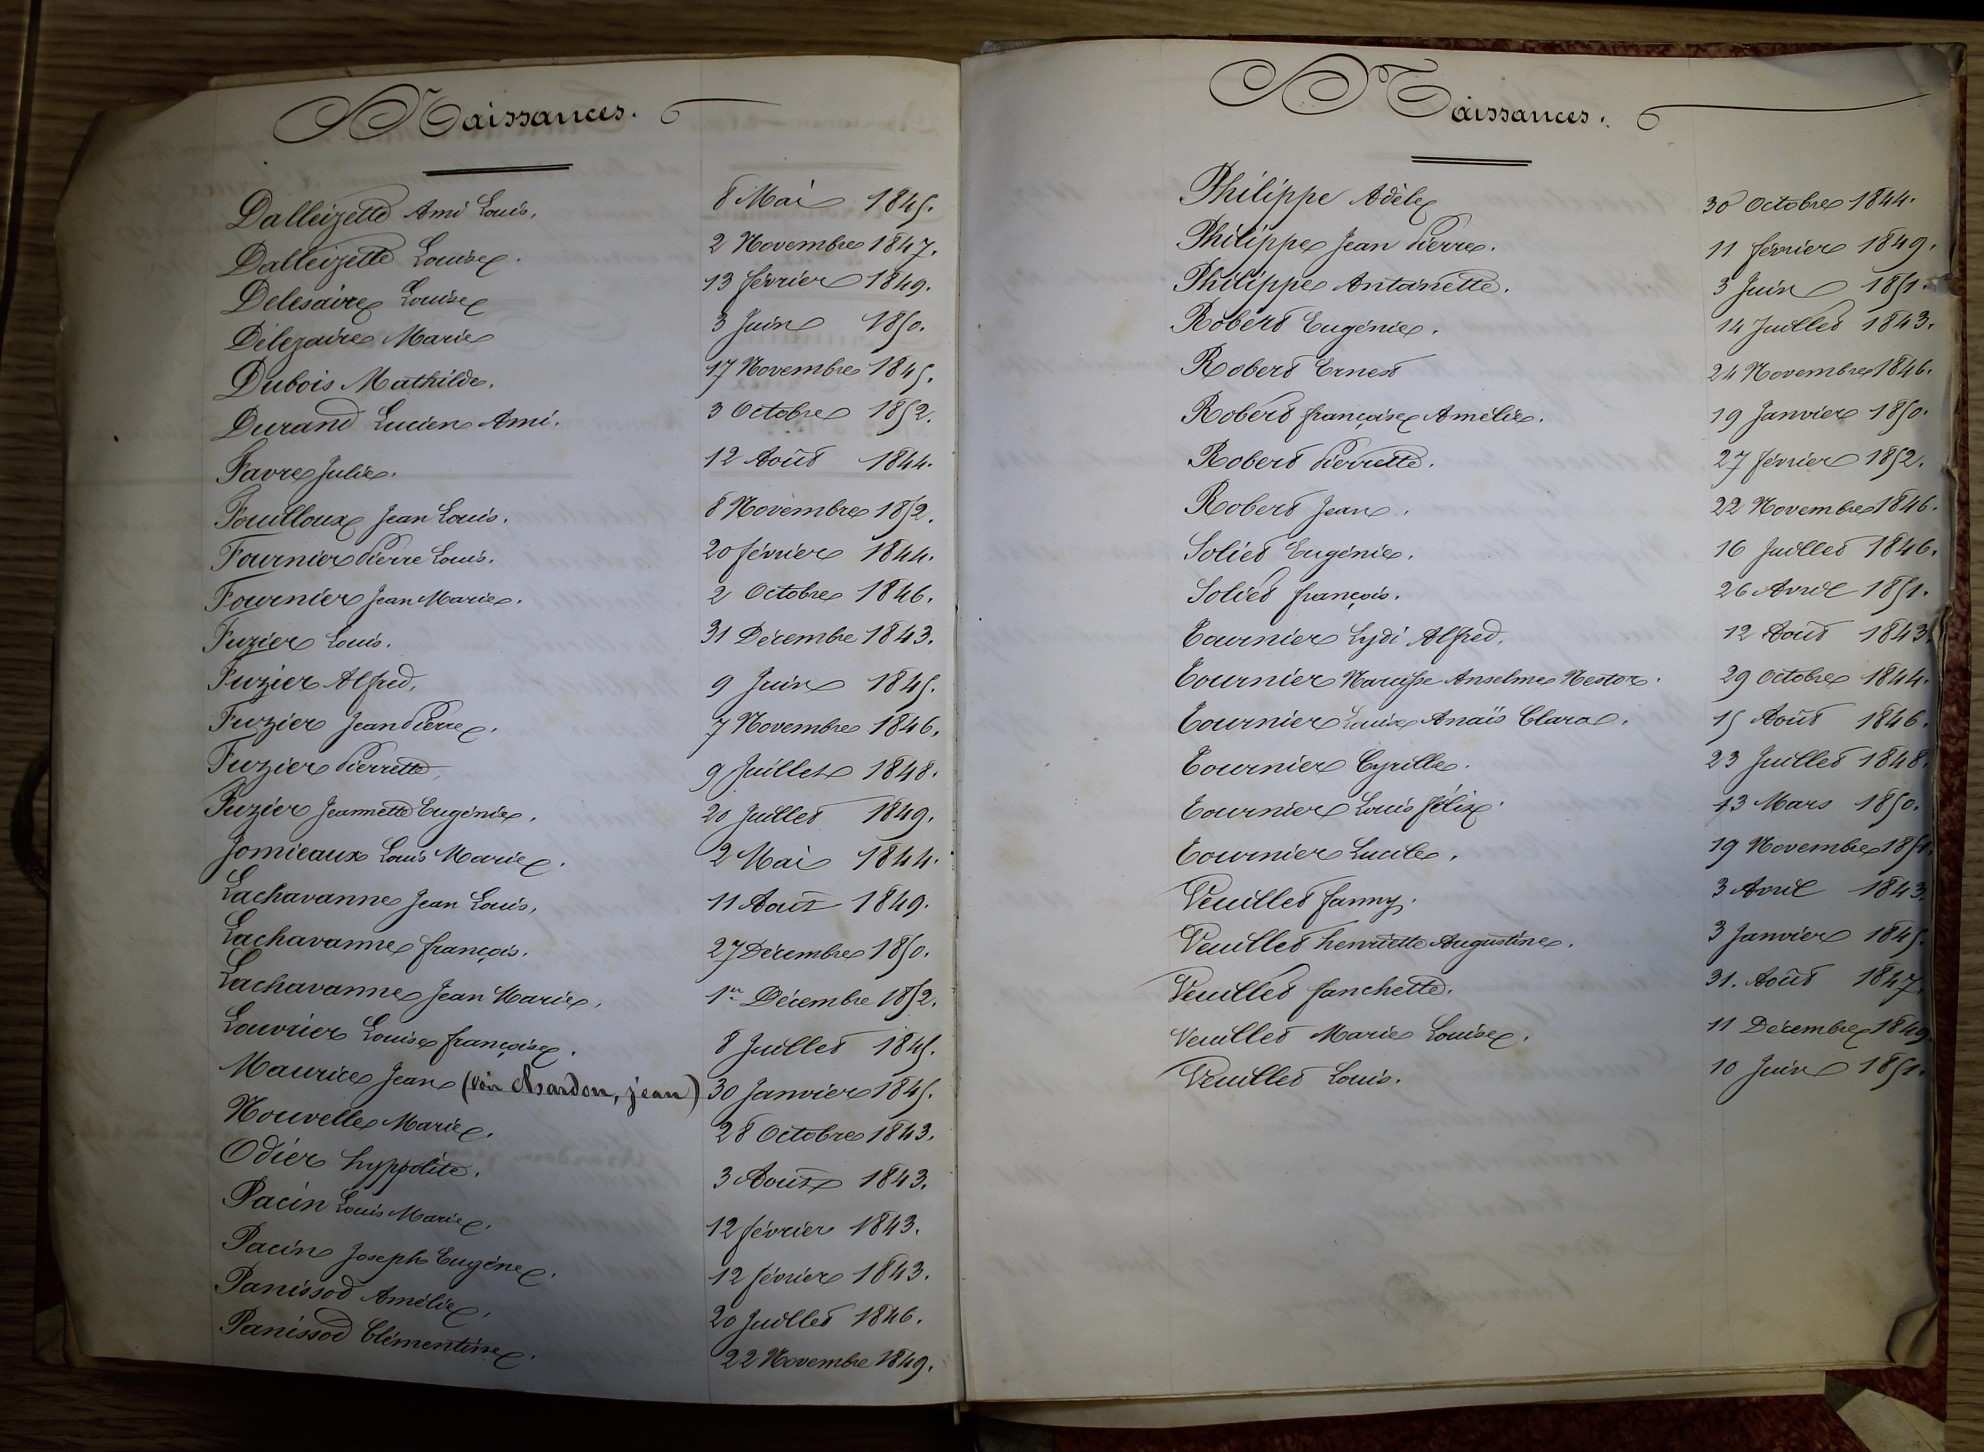 Naissances.
Dalleizette Ami Louis. 8 Mai 1845.
Dalleizette Louise. 2 Novembre 1847.
Delesaire Louise 13 février 1849.
Délezaire Marie 3 Juin 1850.
Dubois Mathilde. 17 Novembre 1845.
Durand Lucien Ami. 3 Octobre 1852.
Favre Julie. 12 Août 1844.
Fouilloux Jean Louis. 8 Novembre 1852.
Fournier Pierre Louis. 20 février 1844.
Fournier Jean Marie. 2 Octobre 1846.
Fuzier Louis. 31 Décembre 1843.
Fuzier Alfred. 9 Juin 1845.
Fuzier Jean Pierre. 7 Novembre 1846.
Fuzier Pierrette. 9 Juillet 1848.
Fuzier Jeannette Eugénie. 20 Juillet 1849.
Jomieaux Louis Marie. 2 Mai 1844.
Lachavanne Jean Louis. 11 Août 1849.
Lachavanne françois. 27 Décembre 1850.
Lachavanne Jean Marie. 1er Décembre 1852.
Louvrier Louise françoise. 8 Juillet 1845.
Maurice Jean (Voir Abardon, jean) 30 Janvier 1845.
Nouvelle Marie. 28 Octobre 1843.
Odier hyppolite. 3 Août 1843.
Pacin Louis Marie. 12 février 1843.
Pacin Joseph Eugéne. 12 février 1843.
Panissod Amélie. 20 Juillet 1846.
Panissod Clémentine. 22 Novembre 1849.
Naissances.
Philippe Adèle 30 Octobre 1844.
Philippe Jean Pierre. 11 février 1849.
Philippe Antoinette. 3 Juin 1851.
Robert Eugénie. 14 Juillet 1843.
Robert Ernest 24 Novembre 1846.
Robert françoise Amélie. 19 Janvier 1850.
Robert Pierrette. 27 février 1852.
Robert Jean. 22 Novembre 1846.
Soliet Eugénie. 16 Juillet 1846.
Soliet françois. 26 Avril 1851.
Tournier Lydi Alfred. 12 Août 1843.
Tournier Narcisse Anselme Nestor. 29 Octobre 1844.
Tournier Louise Anaïs Clara. 15 Août 1846.
Tournier Cyrille. 23 Juillet 1848.
Tournier Louis félix. 13 Mars 1850.
Tournier Lucile. 19 Novembre 1851.
Veuillet fanny. 3 Avril 1843.
Veuillet henriette Augustine. 3 Janvier 1845.
Veuillet fanchette. 31. Août 1847.
Veuillet Marie Louise. 11 Décembre 1849.
Veuillet Louis. 10 Juin 1851.